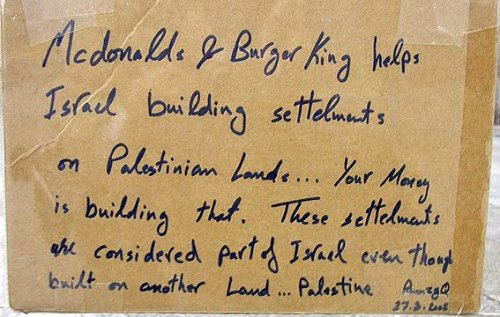 Mcdonalds & Burger King helps
Israel building settelments
on Palestinian Lands... Your Money
is building that. These settelments
are considered part of Israel even though
built on another Land... Palestine